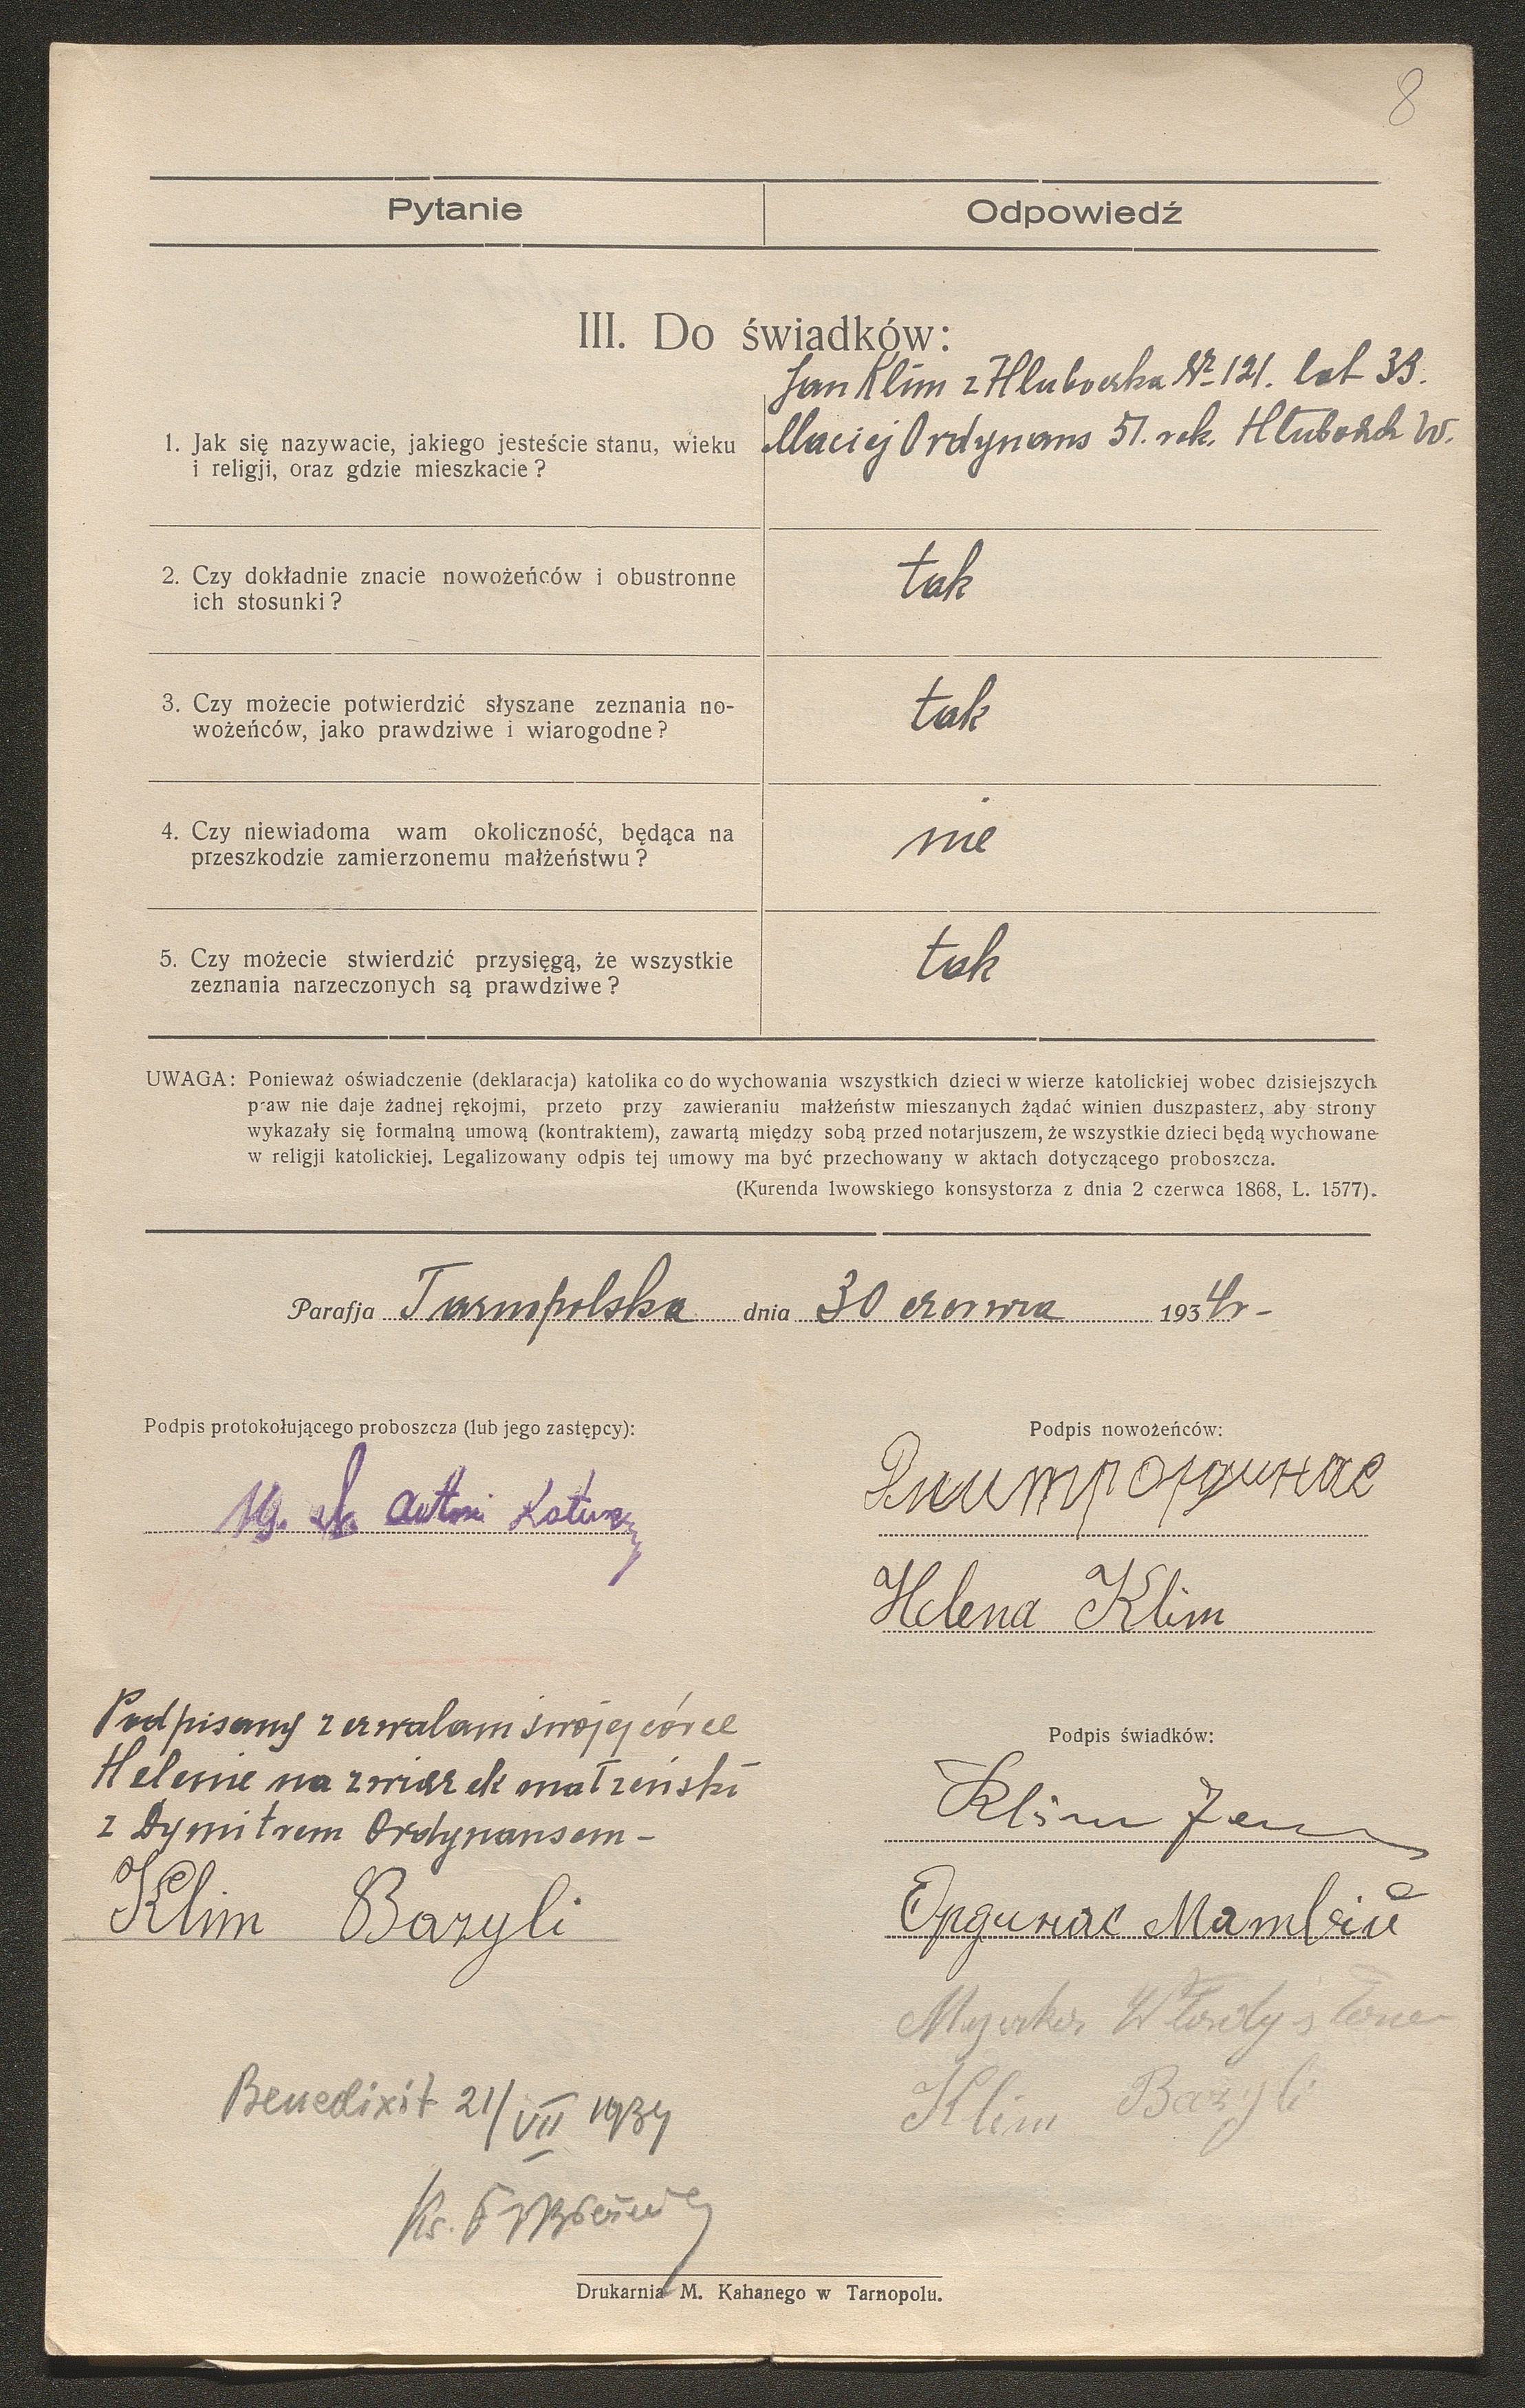 8
Pytanie
Odpowiedź
III. Do świadków:
Jan Klim z Hluboczka Nr 121. lat 39.
1. Jak się nazywacie, jakiego jesteście stanu, wieku
i religji, oraz gdzie mieszkacie?
Maciej Ordynans 51. rok. Hłubočzek W.
2. Czy dokładnie znacie nowożeńców i obustronne
ich stosunki?
tak
3. Czy możecie potwierdzić słyszane zeznania no-
wożeńców, jako prawdziwe i wiarogodne?
tak
4. Czy niewiadoma wam okoliczność, będąca na
przeszkodzie zamierzonemu małżeństwu?
nie
5. Czy możecie stwierdzić przysięgą, że wszystkie
zeznania narzeczonych są prawdziwe?
tak
UWAGA: Ponieważ oświadczenie (deklaracja) katolika co do wychowania wszystkich dzieci w wierze katolickiej wobec dzisiejszych
praw nie daje żadnej rękojmi, przeto przy zawieraniu małżeństw mieszanych żądać winien duszpasterz, aby strony
wykazały się formalną umową (kontraktem), zawartą między sobą przed notarjuszem, że wszystkie dzieci będą wychowane
w religji katolickiej. Legalizowany odpis tej umowy ma być przechowany w aktach dotyczącego proboszcza.
(Kurenda lwowskiego konsystorza z dnia 2 czerwca 1868, L. 1577).
Parafja Tarnopolska dnia 30 czerwca 1934 r -
Podpis protokołującego proboszcza (lub jego zastępcy):
Antoni
Podpis nowożeńców:
Дмитр Ординас
Helena Klim
Podpisany zezwalam swojej córce
Helenie na związek małżeński
z Dymitrem Ordynansem -
Klim Bazyli
Podpis świadków:
Klim Jan
Ордінас Матвій
Władysław
Klim Bazyli
Benedixit 21/VII 1934
Ks.
Drukarnia M. Kahanego w Tarnopolu.